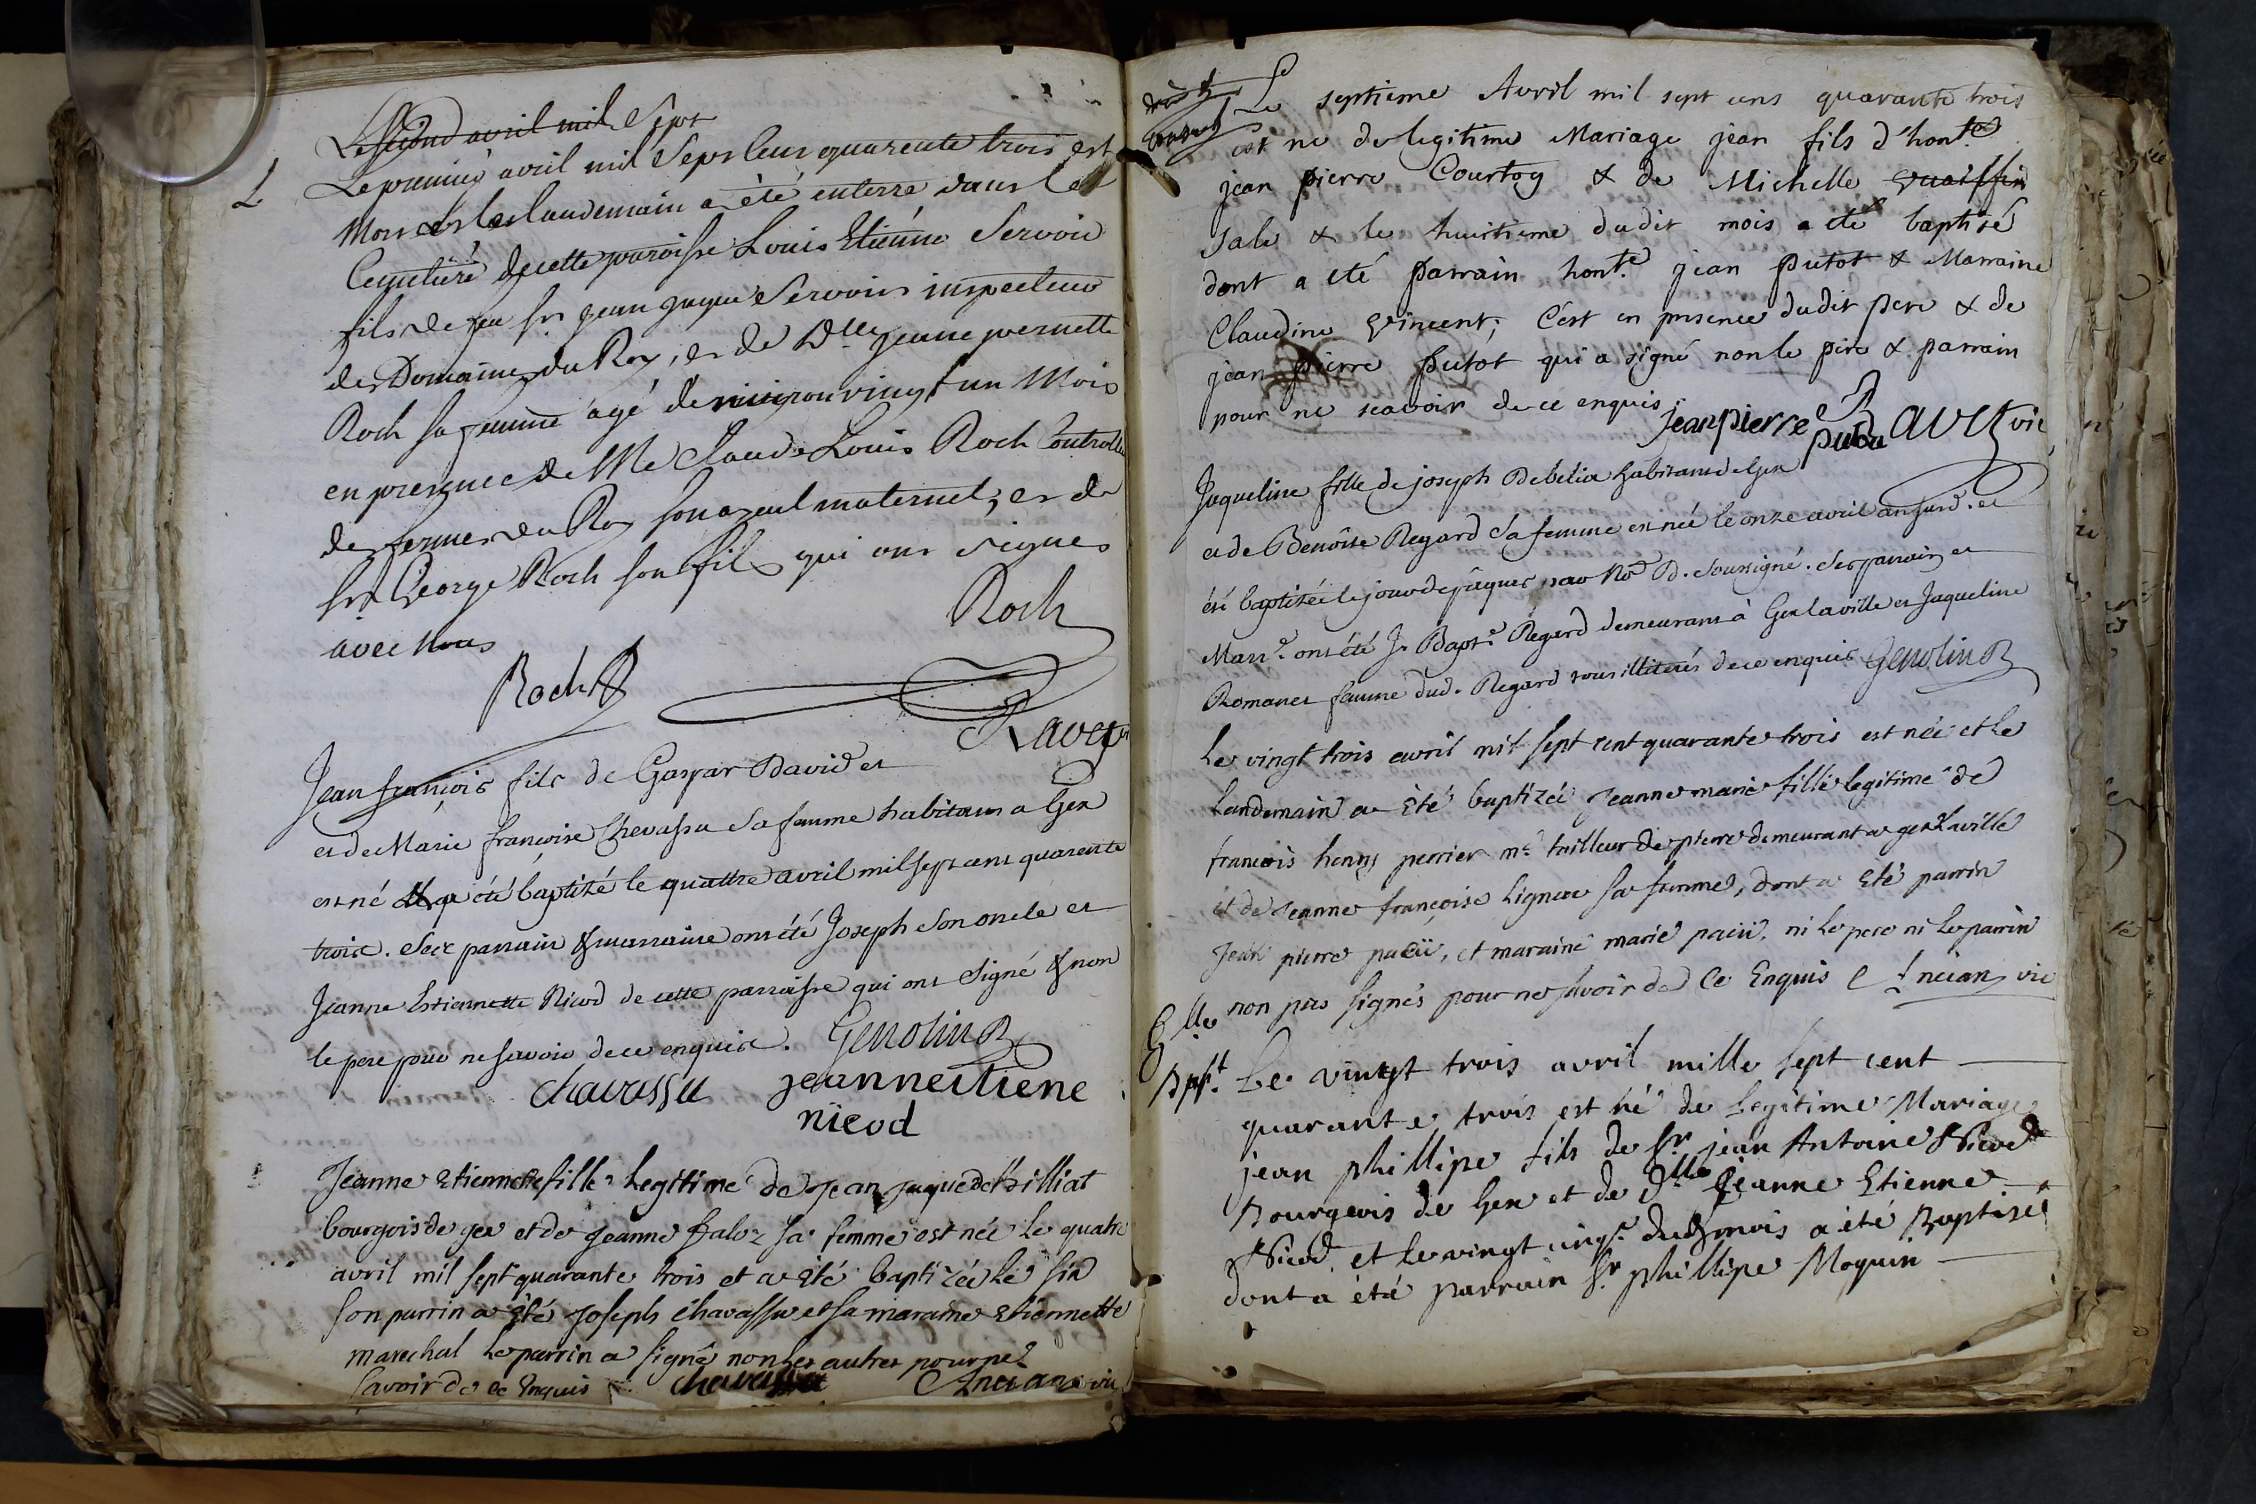 Le second avril mil sept
Le premier avril mil sept cens quarente trois est
mort et le landemain a èté enterré dans le
Cemitiére de cette paroisse Louis Etienne Servoin
fils de feu sr. jean jaque Servoin inspecteur
des Domaines du Roy, et de Dlle jeanne pernette
Roch sa femme agé d'environ vingt un mois
en presence de Me Claude Louis Roch Controlleur
des fermes du Roy son ayeul maternel, et de
sr. George Roch son fils qui ont signés
avec nous
Roch
Roch
Ravet
Jean françois fils de Gaspar David et
et de Marie françoise Chevassu sa femme habitans a Gex
est né et a été baptizé le quattre avril mil sept cent quarente
trois. Ses parrain & marraine ont été Joseph son oncle et
Jeanne Estiennette Nicod de cette parroisse qui ont signé & non
le pere pour ne savoir de ce enquis. Genolin
chavassu jeannestiene
nicod
Jeanne Etiennette fille legitime de jean jaque de
bourgois de gex et de jeanne sa femme est née le quatre
avril mil sept quarante trois et a eté baptizée le six
son parrin a eté joseph chavassu et sa maraine etiennette
marechal le parrin a signé non les autres pour ne
savoir de ce enquis chavassu Ancian vic
Le septieme Avril mil sept cens quarante trois
est né de legitime Mariage jean fils d'hont.
jean pierre Courtoy & de Michelle
sale & le huitieme dudit mois a eté baptizé
dont a eté parrain hont. jean putot & Marraine
Claudine Vincent; C'est en presence dudit pere & de
jean pierre putot qui a signé non le pere & parrain
pour ne scavoir de ce enquis
jean pierre putu avet vic
Jaqueline fille de joseph Debelix habitans de Gex
et de Benoite Regard sa femme est née le onze avril an susd. et
été baptizée le jour de pâques par soussigné. Ses parrain et
Marr.e ont été J. Bapt.e Regard demeurans à Gex la ville et Jaqueline
Romanet femme dud. Regard tous illiterés de ce enquis Genolin
Le vingt trois avril mil sept cent quarante trois est née et le
landemain a èté baptizée jeanne marie fille legitime de
francois henry perrier me tailleur de pierre demeurant a gex la ville
et de jeanne françoise ligniere sa femme, dont a eté parrin
jean pierre et maraine marie ni le pere ni le parrin
non pas signés pour ne savoir de ce Enquis Ancian vic
Bpt. Le vingt trois avril mille sept cent
quarante trois est né de Legitime Mariage
jean phillipe fils de sr jean Antoine Nicod
Bourgeois de Gex et de Dlle jeanne Etienne
Nicod, et le vingt cinq.e dud. mois a été Baptisé
dont a été parrain sr phillipe Moquin